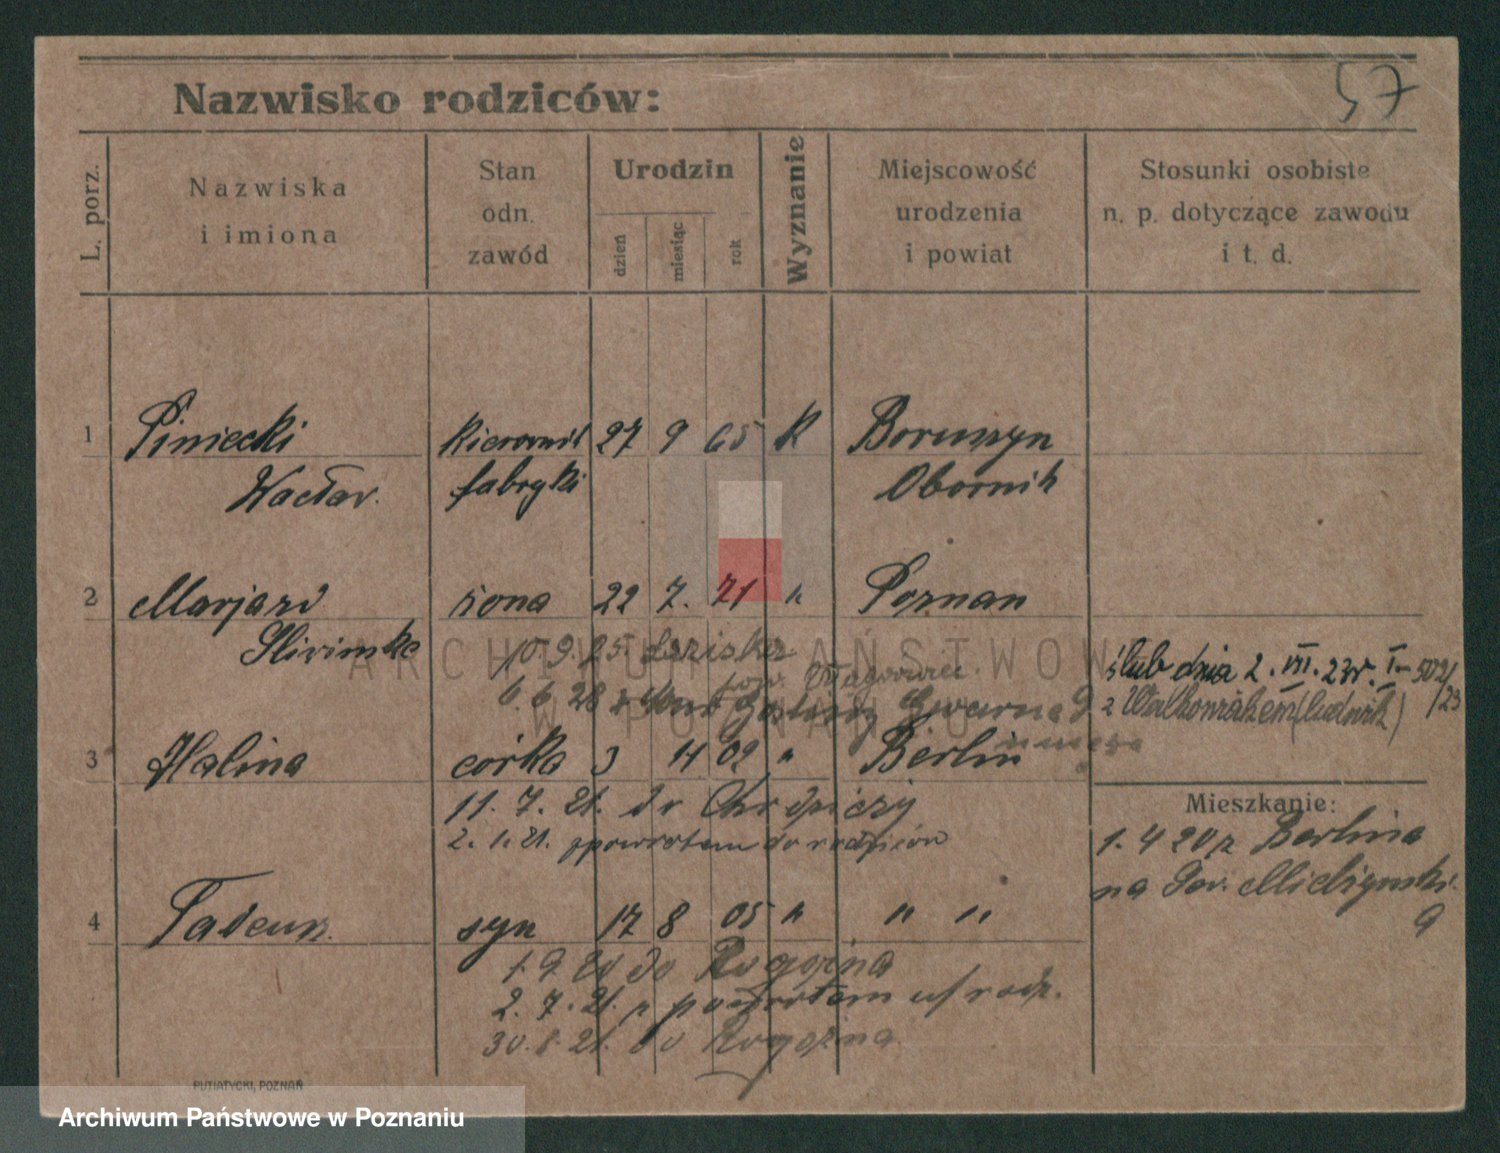 57
Nazwisko rodziców:
L. porz.
Nazwiska
i imiona
Stan
odn.
zawód
Urodzin
dzień
miesiąc
rok
Wyznanie
Miejscowość
urodzenia
i powiat
Stosunki osobiste
n. p. dotyczące zawodu
i t. d.
1 Piniecki kierownik 27 9 65 K Boruszyn
Wacław. fabryki Obornik
2 Marjanna żona 22 7. 71 " Poznan
10.9.25. Łaziska
pow. Wągrowiec
6.6.28 z
ślub dnia 2. VII. 23r. I 502/
/23
z
3 Halina córka 3 11 02 " Berlin
11. 7. 21. do
2. 1. 21. zpowrotem do rodziców
Mieszkanie:
1. 4 20 z Berlina
na
9
4 Tadeusz. syn 17 8 05 " " "
1. 9. 20 do Rogoźna
2. 7. 21. z powrotem rodz.
30. 8. 21. do Rogoźna
PUTIATYCKI, POZNAŃ
ARCHIWUM PAŃSTWOWE
W POZNANIU
Archiwum Państwowe w Poznaniu